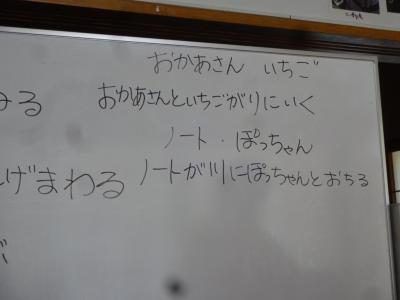 おかあさん いちご
みる
おかあさんといちごがりにいく
ノート・ぽっちゃん
げまわる
ノートが川にぽっちゃんとおちる